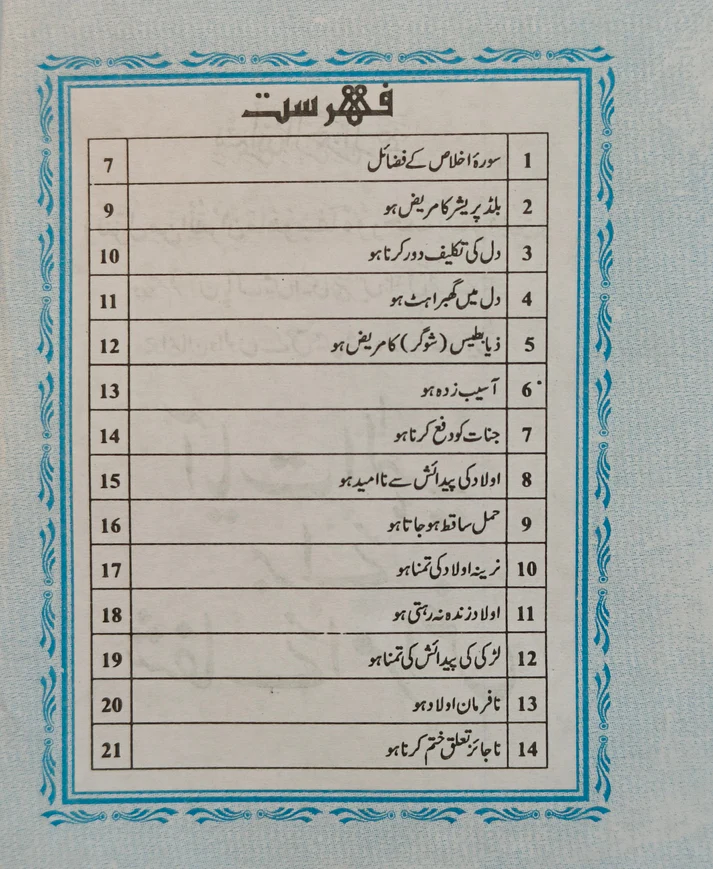 فہرست
1 سورۂ اخلاص کے فضائل 7
2 بلڈ پریشر کا مریض ہو 9
3 دل کی تکلیف دور کرنا ہو 10
4 دل میں گھبراہٹ ہو 11
5 ذیابطیس (شوگر) کا مریض ہو 12
6 آسیب زدہ ہو 13
7 جنات کو دفع کرنا ہو 14
8 اولاد کی پیدائش سے ناامید ہو 15
9 حمل ساقط ہو جاتا ہو 16
10 نرینہ اولاد کی تمنا ہو 17
11 اولاد زندہ نہ رہتی ہو 18
12 لڑکی کی پیدائش کی تمنا ہو 19
13 نافرمان اولاد ہو 20
14 ناجائز تعلق ختم کرنا ہو 21